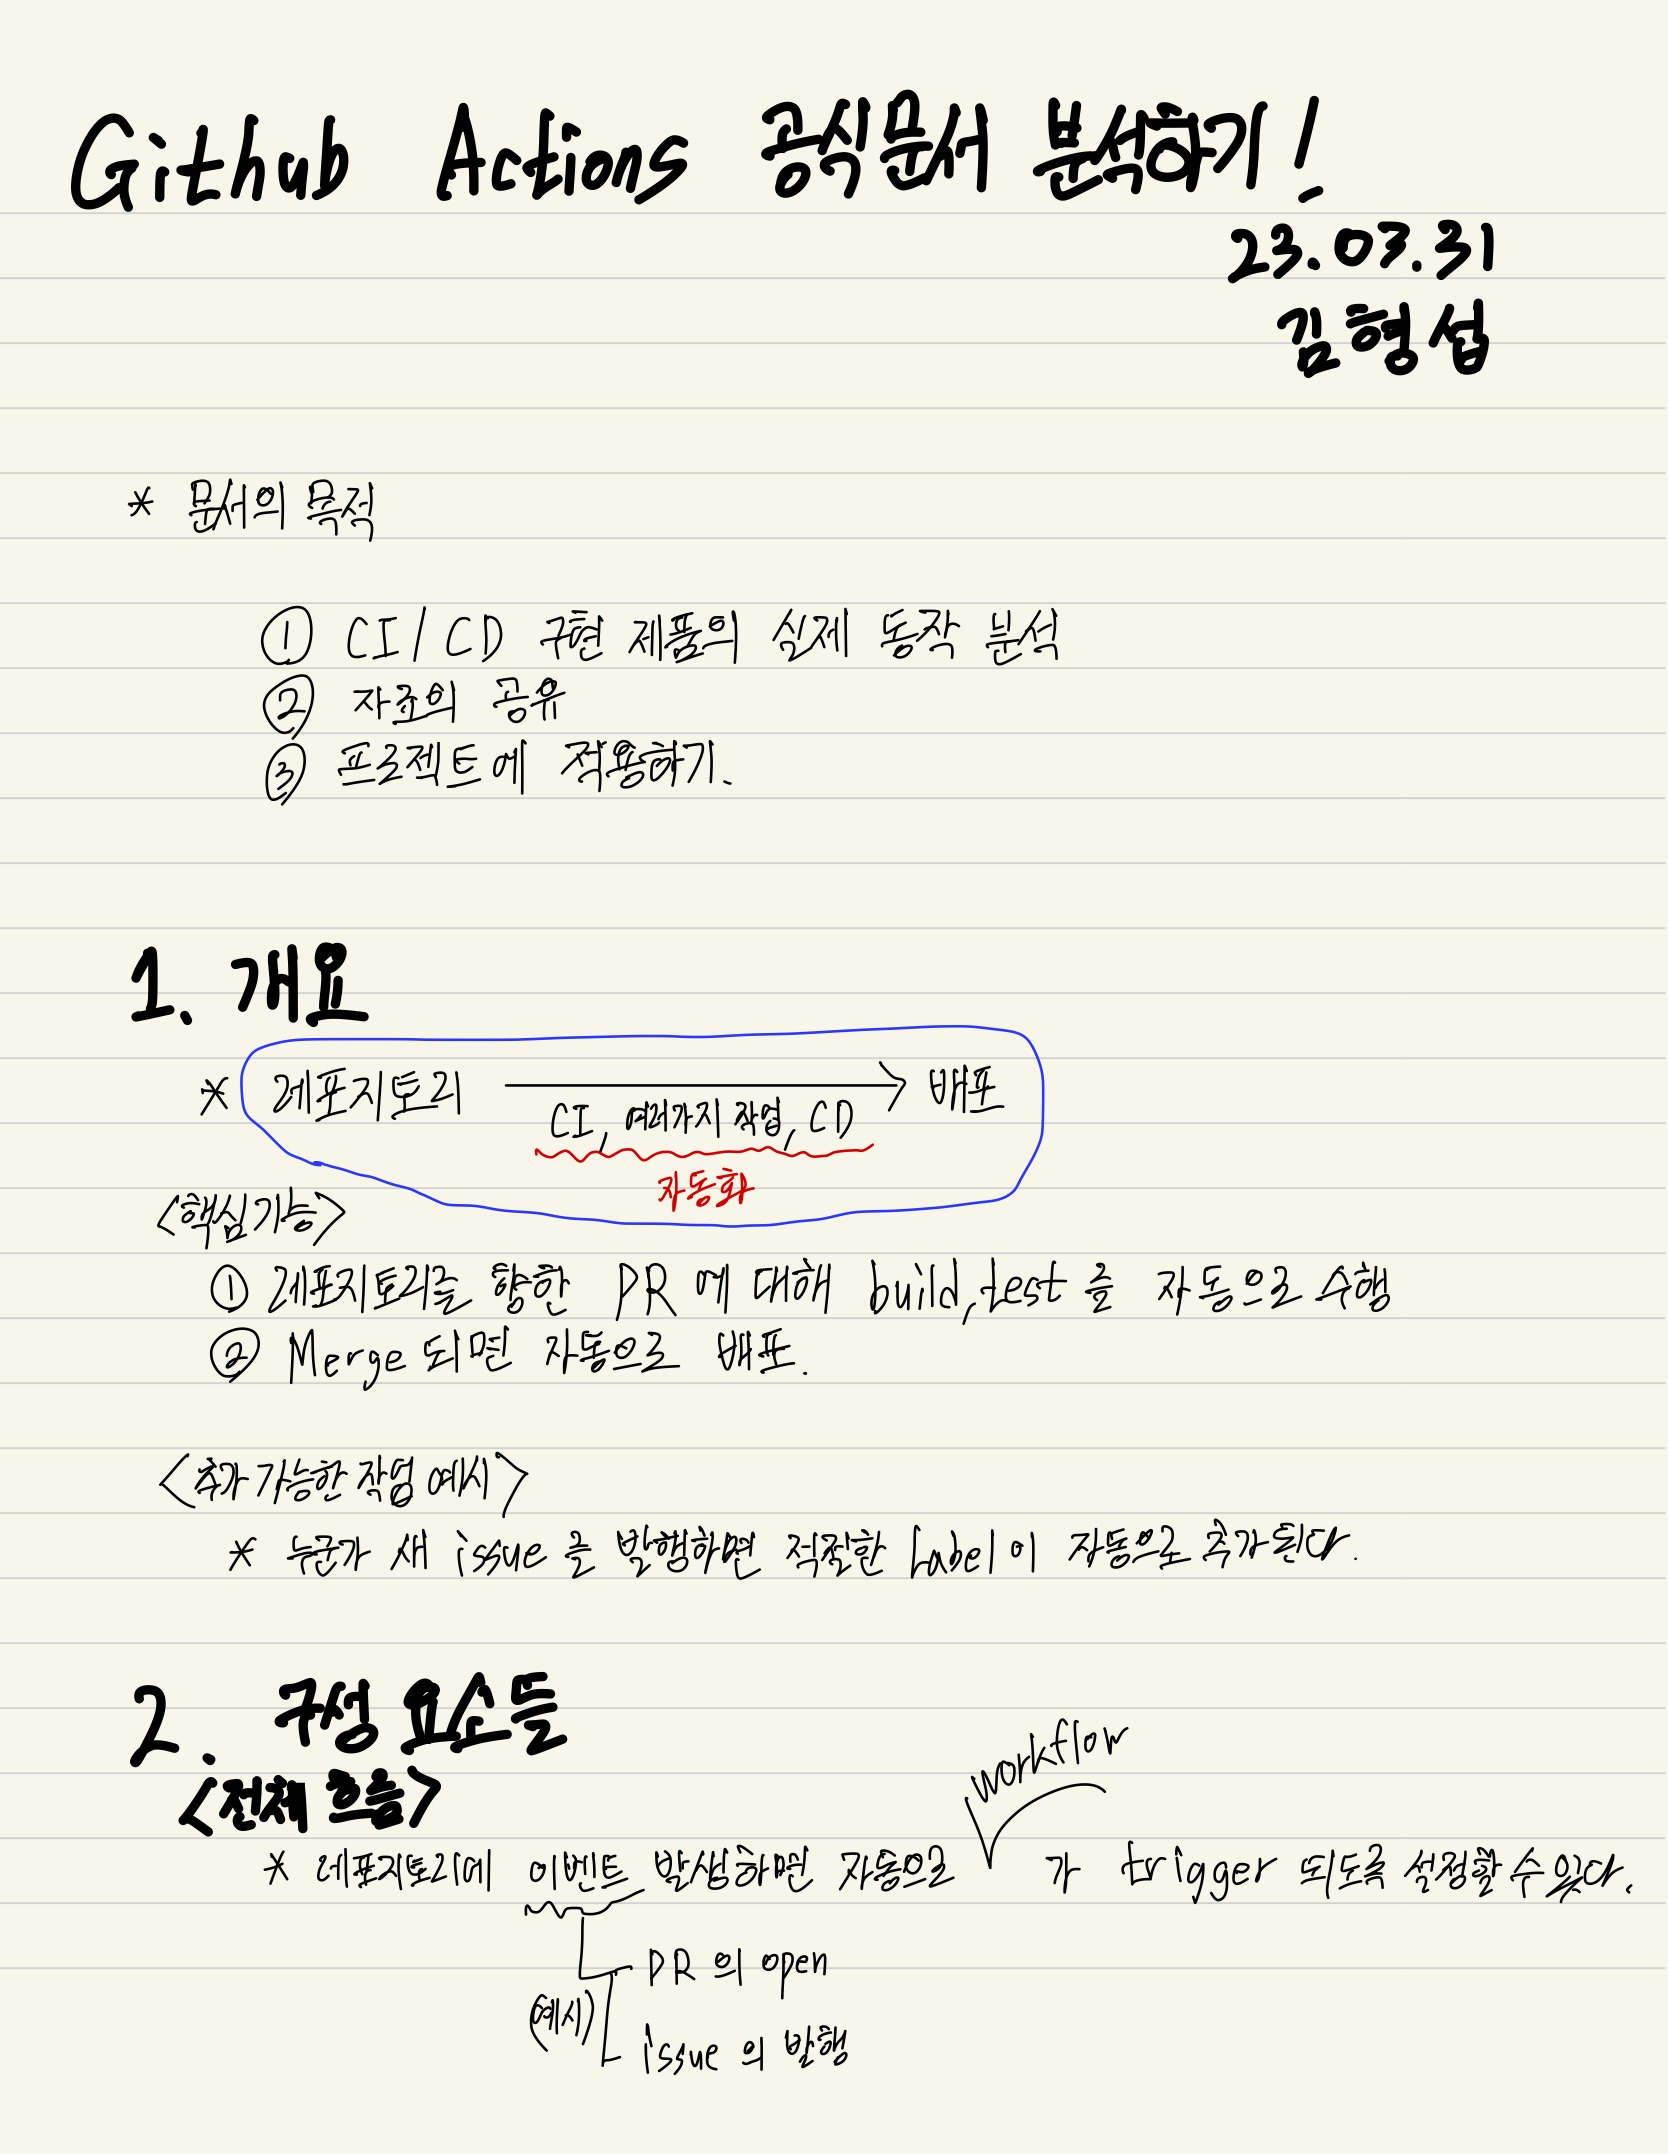 Github Actions 공식문서 분석하기!
23.03.31
김형섭
* 문서의 목적
① CI/CD 구현 제품의 실제 동작 분석
② 자료의 공유
③ 프로젝트에 적용하기.
1. 개요
* 레포지토리 → 배포
CI, 여러가지 작업, CD
자동화
<핵심기능>
① 레포지토리를 향한 PR에 대해 build, test를 자동으로 수행
② Merge 되면 자동으로 배포.
<추가 가능한 작업 예시>
* 누군가 새 issue를 발행하면 적절한 Label이 자동으로 추가된다.
2. 구성 요소들
<전체 흐름>
workflow
* 레포지토리에 이벤트 발생하면 자동으로 가 trigger 되도록 설정할 수 있다.
PR의 open
(예시)
issue의 발행